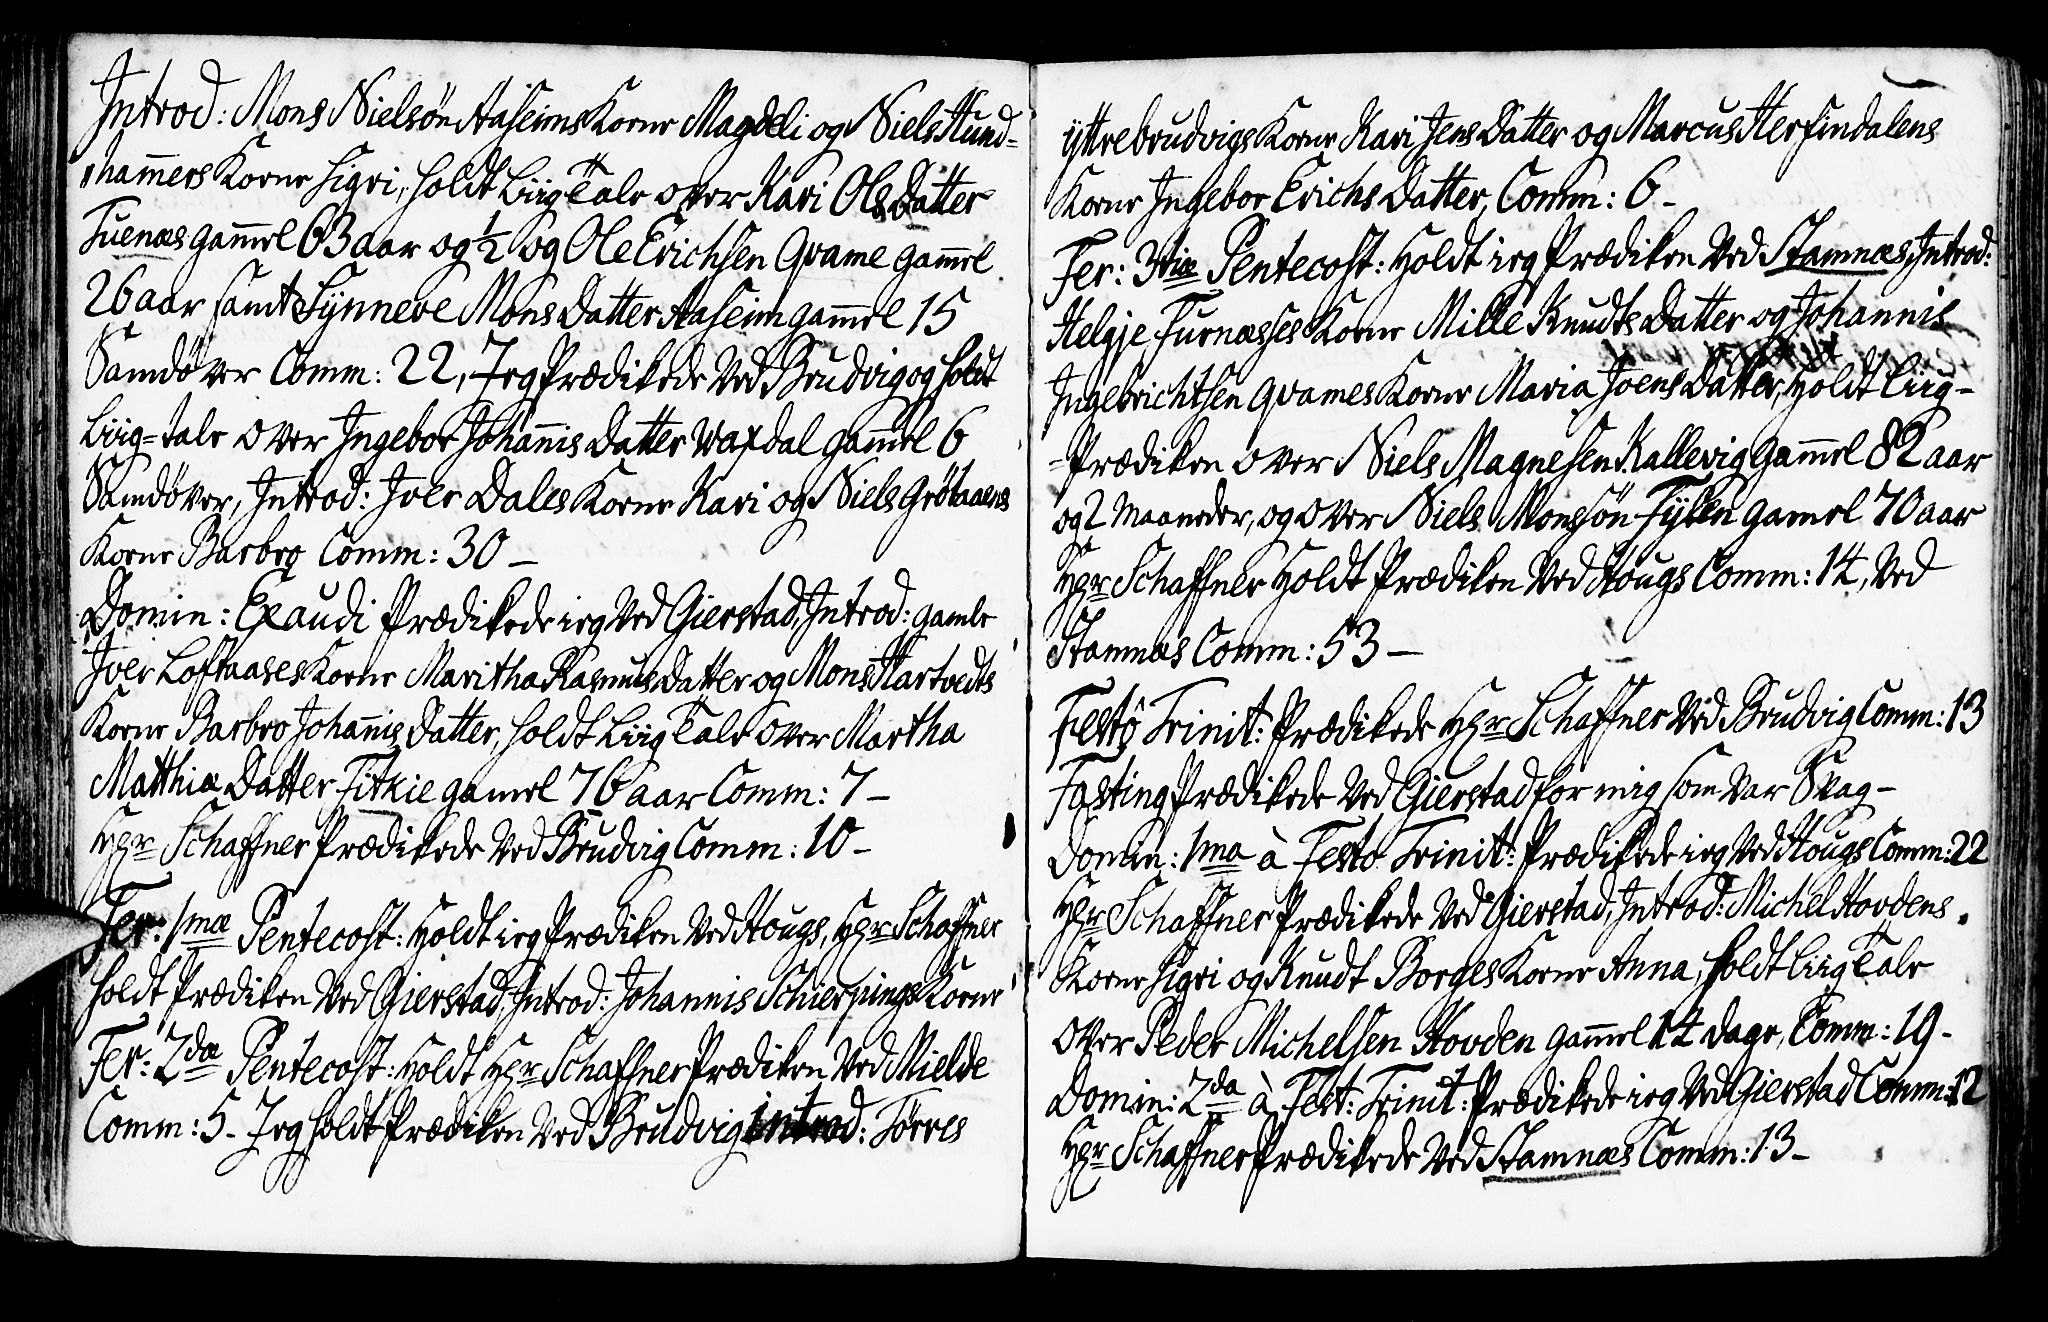 Introd: Mons Nielsøn Aaseims Korne Magdeli og Niels Hund=
hamers Korne Sigri, holdt Liig Tale over Kari Ols Datter
Tuenæs gamel 63 aar og ½ og Ole Erichsen Qvame gamel
26 aar samt Synneve Mons Datter Aaseim gamel 15
Samdøver Comm: 22, Jeg Prædikede Ved Brudvig og holdt
Liig=tale over Ingebor Johanis Datter Waxdal gamel 6
Samdøver, Introd: Iver Dales Korne Kari og Niels
Korne Barbro Comm: 30 —
Domin: Exaudi Prædikede ieg Ved Gierstad, Introd: gamle
Iver Loftaases Korne Maritha Rasmus Datter og Mons Hartvedts
Korne Barbro Johanis Datter, holdt Liig Tale over Martha
Matthiæ Datter Titkie gamel 76 aar Comm: 7 —
Hr Schaffner Prædikede Ved Brudvig Comm: 10 —
Fer: 1mæ Pentecost: Holdt ieg Prædiken Ved Hougs, Hr Schaffner
holdt Prædiken Ved Gierstad, Introd: Johannis Schierpings Korne
Fer: 2dæ Pentecost: Holdt Hr Schaffner Prædiken Ved Mielde
Comm: 5 - Jeg holdt Prædiken Ved Brudvig introd: Tørres
yttrebrudvigs Korne Kari Jens Datter og Marcus Herfindalens
Korne Ingebor Erichs Datter, Comm: 6 -
Fer: 3tiæ Pentecost: Holdt ieg Prædiken Ved Stamnæs, Introd:
Helgje Furnæsses Korne Mille Knudts Datter og Johannis
Ingebrichtsen Qvames Korne Maria Joens Datter, Holdt Liig-
-Prædiken over Niels Magnesen Kallevig gamel 82 aar
og 2 Maaneder, og over Niels Monsøn Fylen gamel 70 aar
Hr Schaffner Holdt Prædiken Ved Hougs Comm: 14, Ved
Stamnæs Comm: 53 —
Festo Trinit: Prædikede Hr Schaffner Ved Brudvig Comm: 13
Fasting Prædikede Ved Gierstad for mig som Var Svag -
Domin: 1ma à Festo Trinit: Prædikede ieg Ved Hougs Comm: 22
Hr Schaffner Prædikede Ved Gierstad, Introd: Michel Hovdens
Korne Sigri og Knudt Borges Korne Anna, holdt Liig Tale
over Peder Michelsen Hovden gamel 14 dage, Comm: 19 -
Domin: 2da à Fest: Trinit: Prædikede ieg Ved Gierstad Comm: 12
Hr Schaffner Prædikede Ved Stamnæs Comm: 13 -